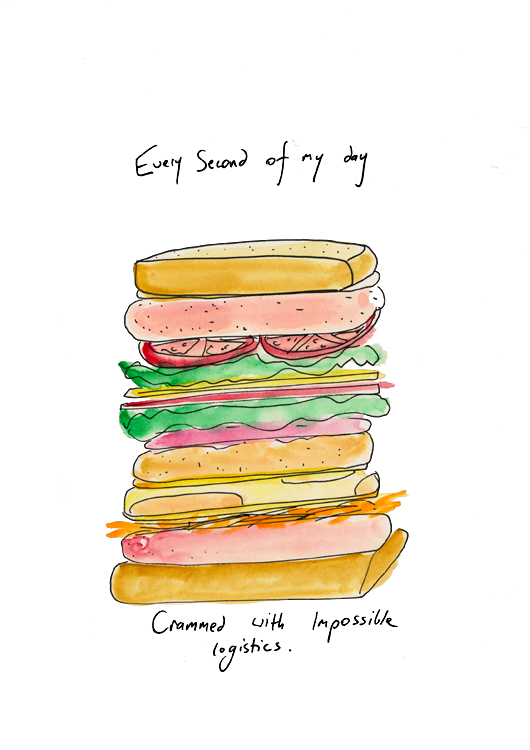 Every Second of my day
Crammed with Impossible
logistics.